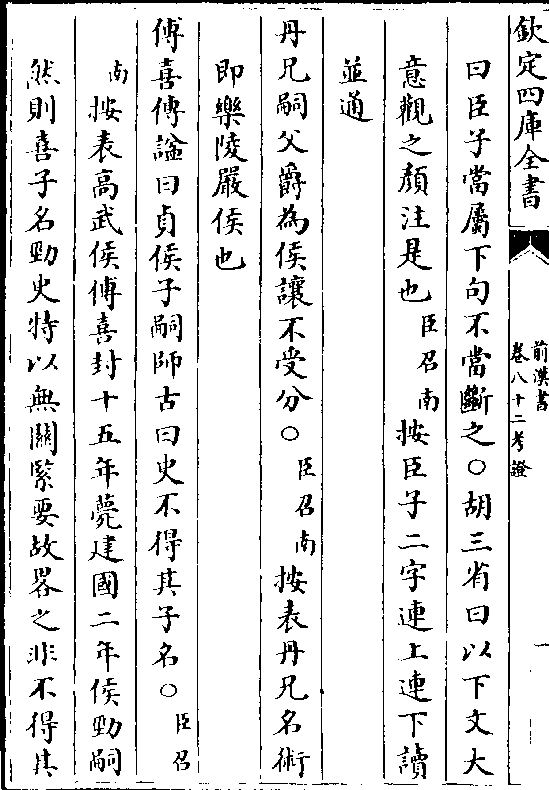 欽定四庫全書
前漢書
卷八十二考證
一
曰臣子當屬下句不當斷之○胡三省曰以下文大
意觀之顏注是也臣召南按臣子二字連上連下讀
並通
丹兄嗣父爵為侯讓不受分○臣召南按表丹兄名術
即樂陵嚴侯也
傅喜傅諡曰貞侯子嗣師古曰史不得其子名○臣召
南按表高武侯傅喜封十五年薨建國二年侯勁嗣
然則喜子名勁史特以無關緊要故畧之非不得其